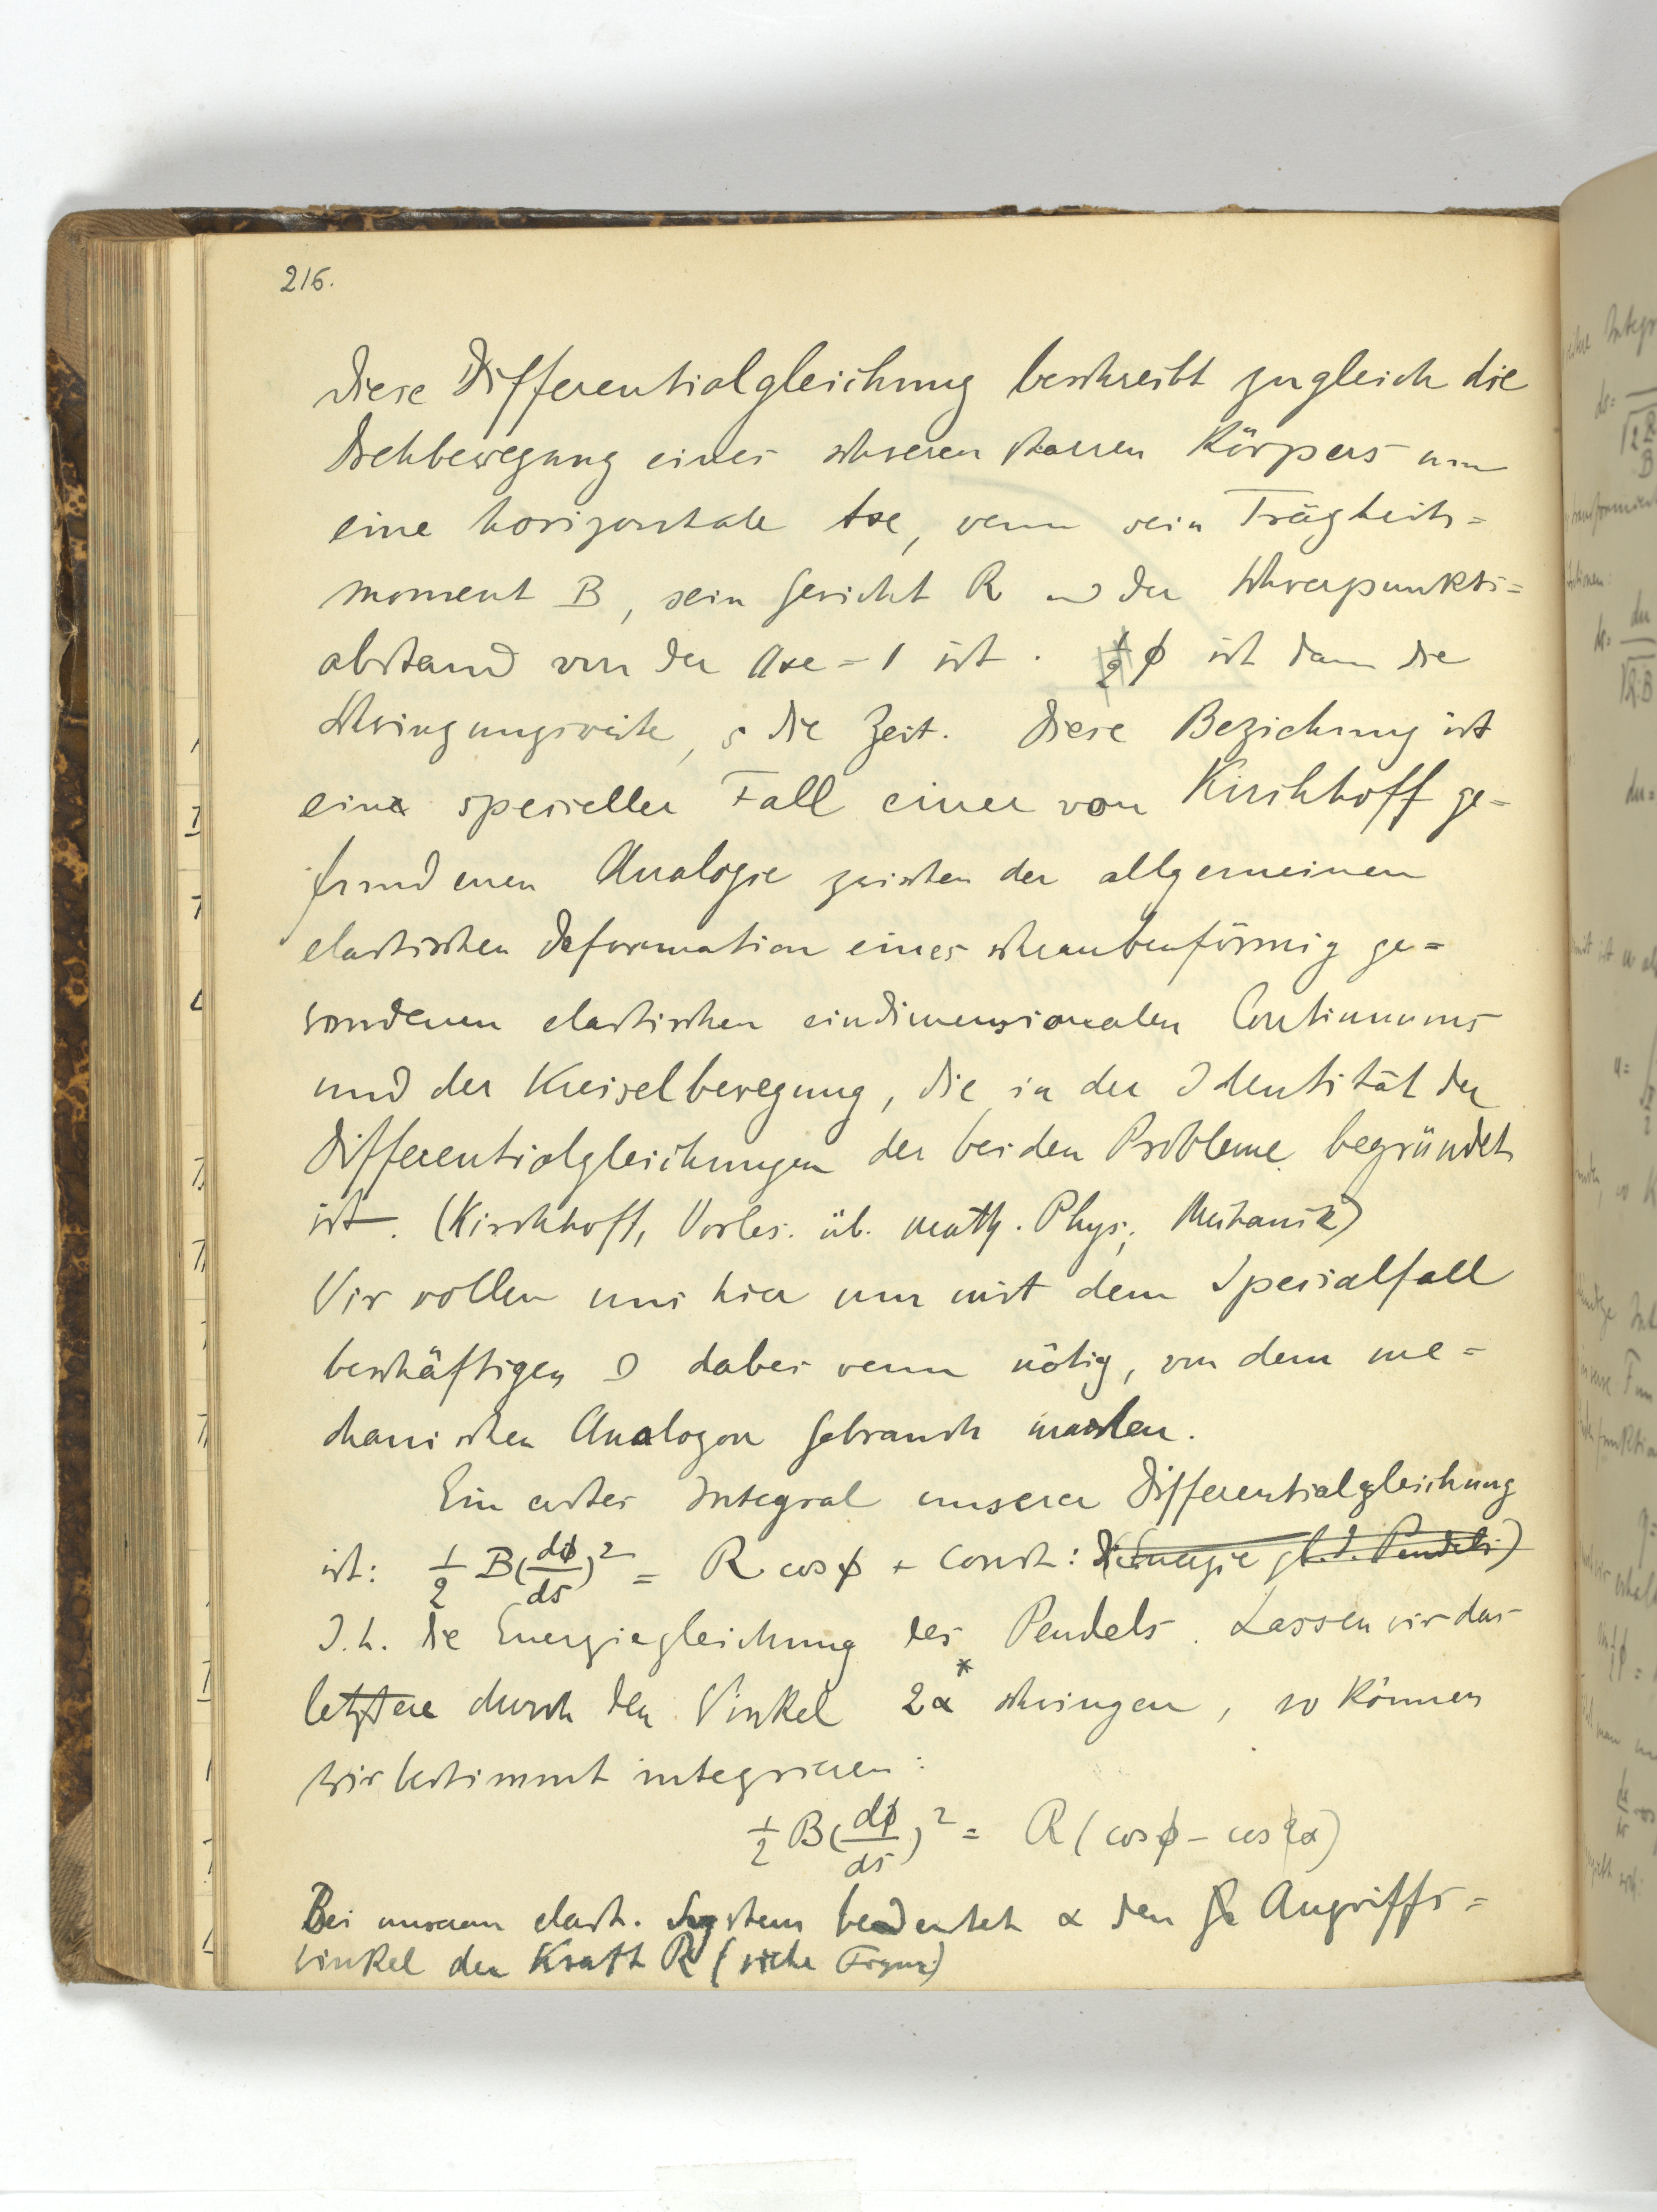 216.
Diese Differentialgleichung beschreibt zugleich die
Drehbewegung eines schweren starren Körpers um
eine horizontale Axe, wenn sein Trägheits=
moment B, sein Gewicht R u der Schwerpunkts=
abstand von der Axe = 1 ist. ½ φ ist dann die
Schwingungsweite, s die Zeit. Diese Beziehung ist
ein spezieller Fall einer von Kirchhoff ge=
fundenen Analogie zwischen der allgemeinen
elastischen Deformation eines schraubenförmig ge=
wundenen elastischen eindimensionalen Continuums
und der Kreiselbewegung, die in der Identität der
Differentialgleichungen der beiden Probleme begründet
ist. (Kirchhoff, Vorles. üb. math. Phys., Mechanik)
Wir wollen uns hier nur mit dem Spezialfall
beschäftigen u dabei wenn nötig, von dem me=
chanischen Analogon Gebrauch machen.
Ein erstes Integral unserer Differentialgleichung
ist: ½ B(dφ/ds)² = R cos φ + Const: (Energie gl. d. Pendels)
D.h. die Energiegleichung des Pendels. Lassen wir das
letztere durch den Winkel 2α* schwingen, so können
wir bestimmt integrieren:
½ B(dφ/ds)² = R(cos φ - cos α)
Bei unserem elast. System bedeutet α den Angriffs=
winkel der Kraft R (siehe Figur)